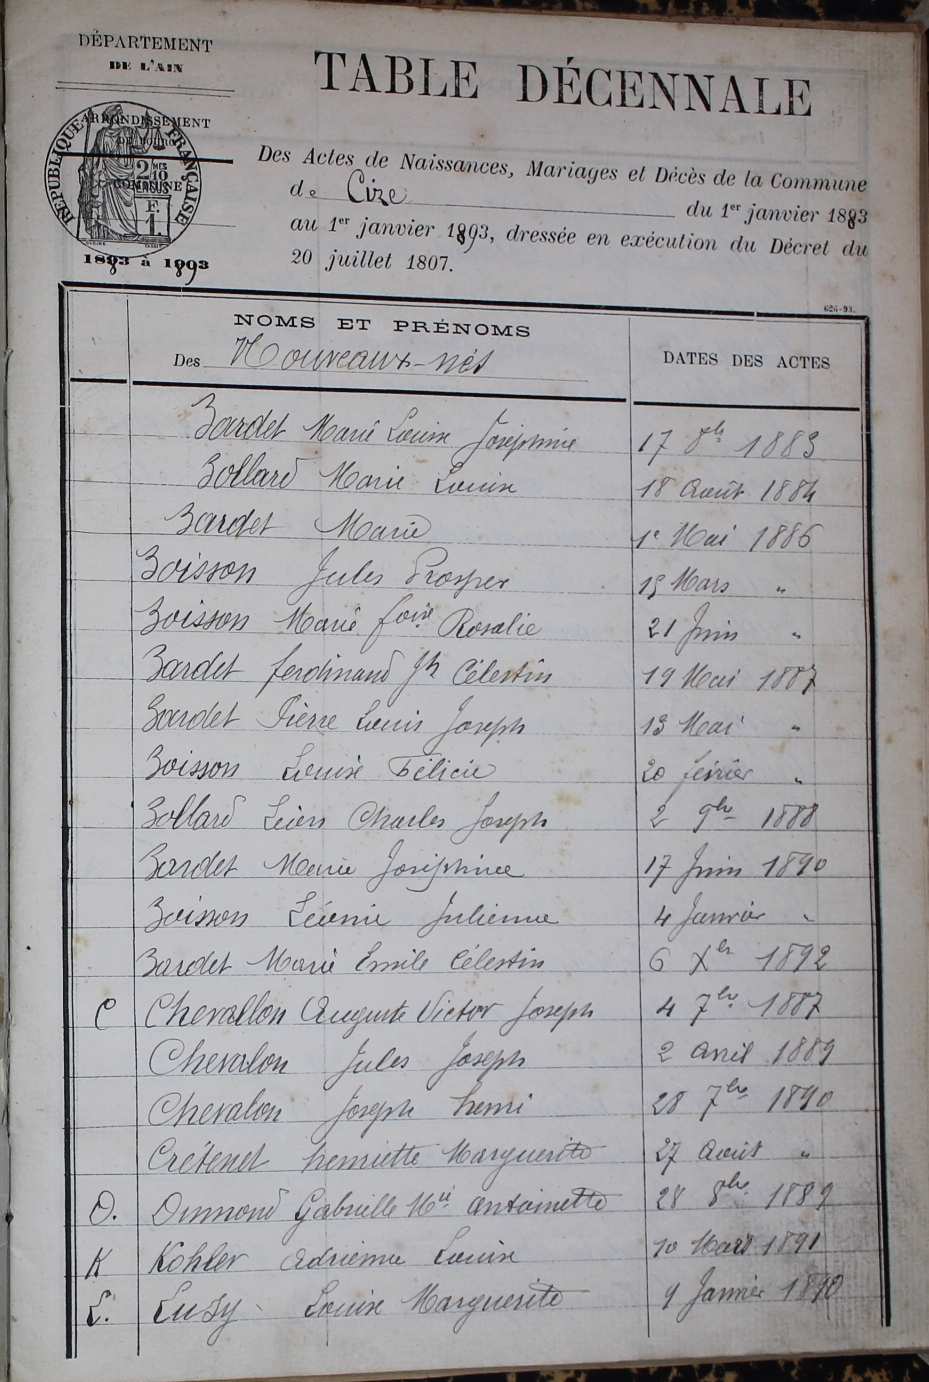 DÉPARTEMENT
DE L'AIN
TABLE DÉCENNALE
ARRONDISSEMENT
RÉPUBLIQUE FRANÇAISE
2/10 EN SUS
COMMUNE
F. 1.
1883 à 1893
Des Actes de Naissances, Mariages et Décès de la Commune
de Cize du 1er janvier 1883
au 1er janvier 1893, dressée en exécution du Décret du
20 juillet 1807.
626-93.
NOMS ET PRÉNOMS
Des Nouveaux-nés
DATES DES ACTES
Bardet Marie Louise Joséphine 17 8bre 1883
Bollard Marie Louise 18 Août 1884
Bardet Marie 1e Mai 1886
Boisson Jules Prosper 15 Mars "
Boisson Marie foise Rosalie 21 Juin "
Bardet ferdinand Jh Célestin 19 Mai 1887
Bardet Pierre Louis Joseph 13 Mai "
Boisson Louise Félicie 20 février "
Bollard Léon Charles Joseph 2 9bre 1888
Bardet Marie Joséphine 17 Juin 1890
Boisson Léonie Julienne 4 Janvier "
Bardet Marie Emile Célestin 6 Xbre 1892
C Chevallon Auguste Victor Joseph 4 7bre 1887
Chevalon Jules Joseph 2 avril 1889
Chevalon Joseph henri 28 7bre 1890
Crétenet henriette Marguerite 27 Août "
D. Dumond Gabrielle Mie antoinette 28 8bre 1889
K Kohler Adrienne Louise 10 Mars 1891
L. Luzy Louise Marguerite 9 Janvier 1890